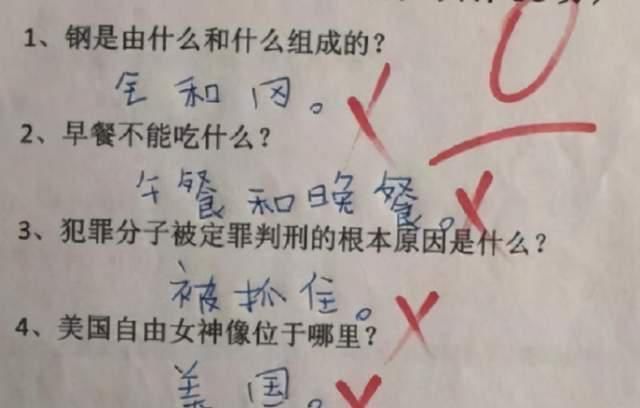 0
1、钢是由什么和什么组成的？
钅和冈。
2、早餐不能吃什么？
午餐和晚餐。
3、犯罪分子被定罪判刑的根本原因是什么？
被抓住。
4、美国自由女神像位于哪里？
美国。